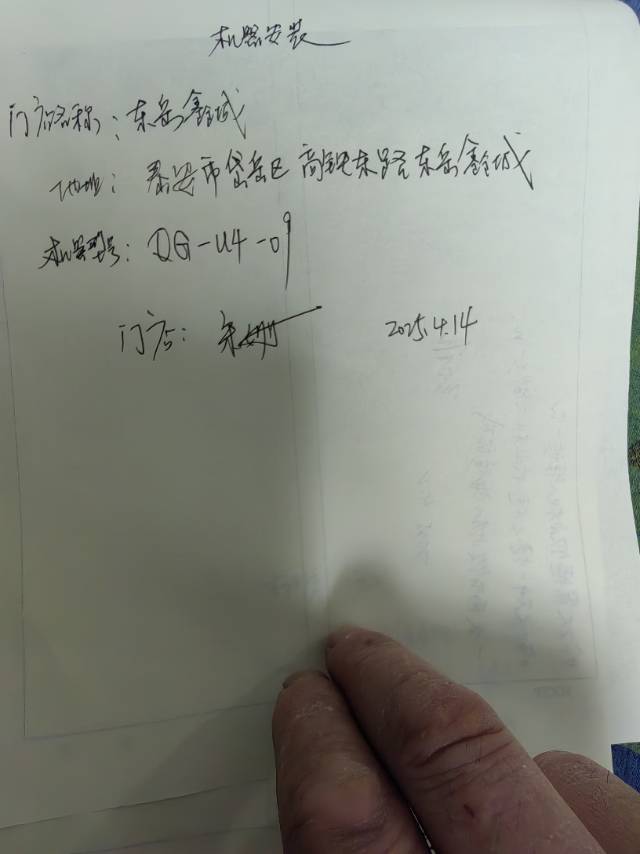 机器安装
门店名称：东岳鑫城
地址：泰安市岱岳区高铁东路东岳鑫城
机器型号：QG-U4-09
门店：
2025.4.14